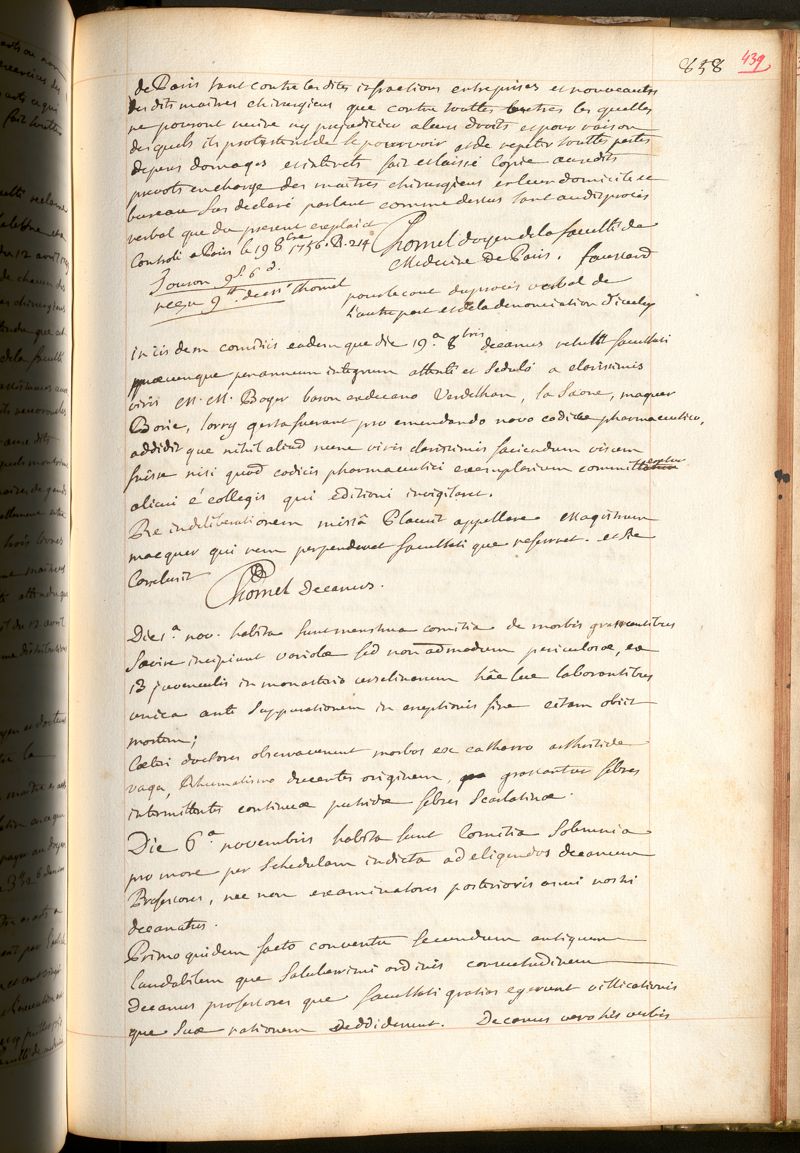 858 439
de Paris tant contre lesdites infractions entreprises et nouveautés
desdits maitres chirurgiens que contre toutes autres les quelles
ne pouront nuire ny prejudicier a leurs droits et pour raison
des quels ils protestent de se pourvoir et de repeter touttes pertes
depens domages et interets fait et laissé Copie auxdits
prevots en charge des maitres chirurgiens en leur domicile et
bureau Sus declaré parlant comme dessus tant du dit procès
verbal que du present exploict
Controlé a Paris le 19 8bre 1756. R. 214 Chomel doyen de la faculté de
Medecine de Paris.
reçu 9 Chomel
pour le cout du procès verbal de
L'autre part et de la denonciation d'iceluy
In iisdem comitiis eadem que die 19a 8bris decanus retulit facultati
quaecunque per annum integrum attentè et Sedulò a clarissimis
viris M. M. Boyer baron exdecano Verdelhan, la Saone, maquer
Borie, lorry gesta fuerant pro emendando novo codice pharmaceutico,
addidit que nihil aliud nunc viris clarissimis faciendum visum
fuisse nisi quod codicis pharmaceutici exemplarium committeretur
alicui è collegis qui editioni invigilaret.
Re in deliberationem missâ Placuit appellare Magistrum
macquer qui rem perpenderet facultati que referret. et Sic
Conclusit Chomel Decanus.
Die 1a nov. habita Sunt menstrua comitia de morbis grassantibus
Saevire incipiunt variolae sed non admodum periculosae, ex
13 juvenculis in monasterio urselinarum hâc lue laborantibus
unica ante Suppurationem in eruptionis fine etiam obiit
mortem;
Caeteri doctores observaverunt morbos ex catharro arthritide
vaga, Rhumatismo ducentes originem, grassantur febres
intermittentes continuae putridae febres Scarlatinae.
Die 6a novembris habita Sunt Comitia Solemnia
pro more per Schedulam indicta ad eligendos decanum
Professores, nec non examinatores posterioris anni nostri
decanatus.
Primo quidem facto conventu Secundum antiquum
laudabilem que Saluberrimi ordinis consuetudinem
Decanus professores que facultati gratias egerunt villicationis
que Suae rationem Reddiderunt. Decanus vero his verbis